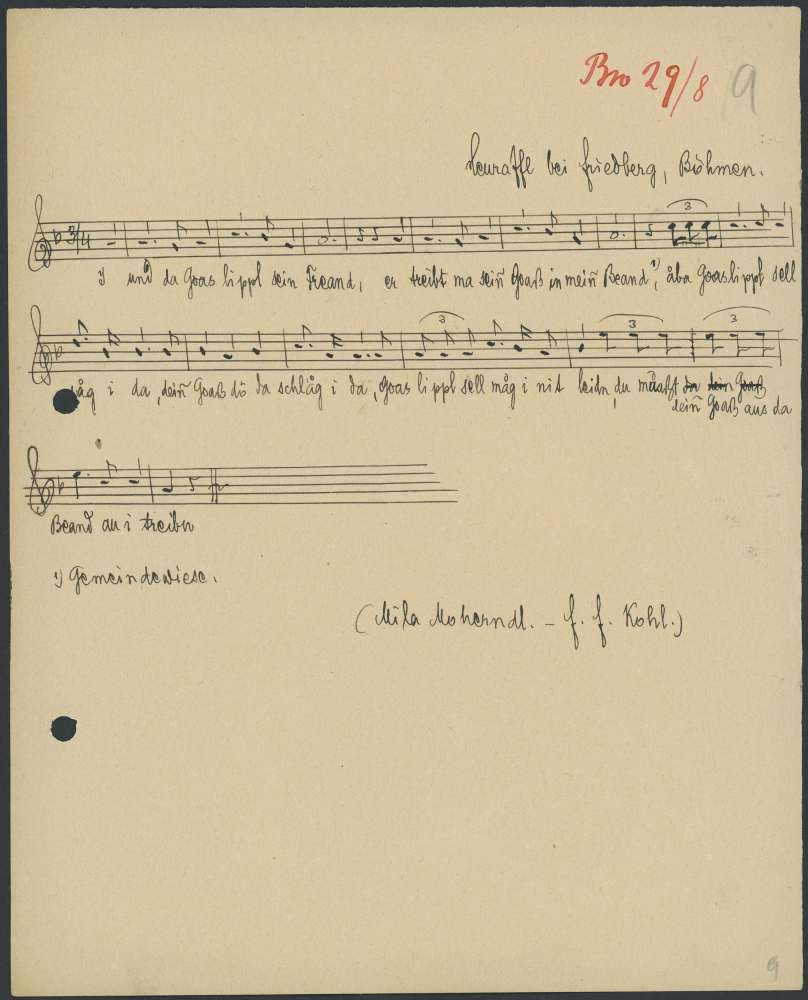 Bro 29/8 9
Heuraffl bei Friedberg, Böhmen.
3/4 3
I und da Goas lippl sein Freand, er treibt ma sein̄ Goaß in mein̄ Beand ¹), åba Goaslippl sell
3 3 3
såg i da, dein̄ Goaß dö da schlåg i da, Goas lippl sell måg i nit leidn, du muaßt da dein Goaß
dein̄ Goaß aus da
Beand au i treibn
¹) Gemeindewiese.
(Mila Moherndl. – F. F. Kohl.)
9